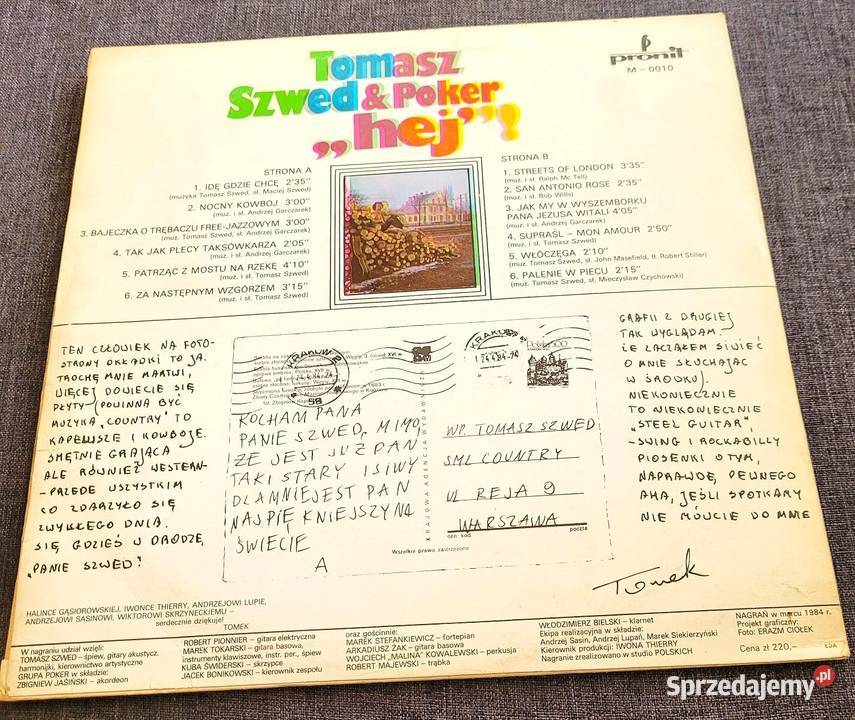 Tomasz
Szwed & Poker
„hej”!
pronit
M-0010
STRONA A
1. IDĘ GDZIE CHCĘ 2'35"
(muzyka Tomasz Szwed, sł. Maciej Szwed)
2. NOCNY KOWBÓJ 3'00"
(muz. i sł. Andrzej Garczarek)
3. BAJECZKA O TRĘBACZU FREE-JAZZOWYM 3'00"
(muz. Tomasz Szwed, sł. Andrzej Garczarek)
4. TAK JAK PLECY TAKSÓWKARZA 2'05"
(muz. i sł. Andrzej Garczarek)
5. PATRZĄC Z MOSTU NA RZEKĘ 4'10"
(muz. i sł. Tomasz Szwed)
6. ZA NASTĘPNYM WZGÓRZEM 3'15"
(muz. i sł. Tomasz Szwed)
STRONA B
1. STREETS OF LONDON 3'35"
(muz. i sł. Ralph Mc Tell)
2. SAN ANTONIO ROSE 2'35"
(muz. i sł. Bob Wills)
3. JAK MY W WYSZEMBORKU
PANA JEZUSA WITALI 4'05"
(muz. i sł. Andrzej Garczarek)
4. SUPRAŚL – MON AMOUR 2'50"
(muz. i sł. Tomasz Szwed)
5. WŁÓCZĘGA 2'10"
(muz. Tomasz Szwed, sł. John Masefield, tł. Robert Stiller)
6. PALENIE W PIECU 2'15"
(muz. Tomasz Szwed, sł. Mieczysław Czychowski)
TEN CZŁOWIEK NA FOTO-
STRONY OKŁADKI TO JA.
TROCHĘ MNIE MARTWI,
WIĘCEJ DOWIECIE SIĘ
PŁYTY (POWINNA BYĆ
MUZYKA „COUNTRY" TO
KAPELUSZE I KOWBOJE.
SMĘTNIE GRAJĄCA
ALE RÓWNIEŻ WESTERN-
-PRZEDE WSZYSTKIM
CO ZDARZYŁO SIĘ
ZWYKŁEGO DNIA.
SIĘ GDZIEŚ W DRODZE,
„PANIE SZWED!"
KRAKÓW 2
58
KOCHAM PANA
PANIE SZWED, MIMO,
ŻE JEST JUŻ PAN
TAKI STARY I SIWY
DLA MNIE JEST PAN
NAJPIĘKNIEJSZY NA
ŚWIECIE
A
KRAJOWA AGENCJA WYDAWNICZA
Wszelkie prawa zastrzeżone
KRAKÓW
Polska 500
WP. TOMASZ SZWED
SML COUNTRY
UL REJA 9
WARSZAWA
ozn. kod.
poczta
GRAFII Z DRUGIEJ
TAK WYGLĄDAM.
ŻE ZACZĄŁEM SIWIEĆ
O MNIE SŁUCHAJĄC
W ŚRODKU).
NIEKONIECZNIE
TO NIEKONIECZNIE
"STEEL GUITAR"
-SWING I ROCKABILLY
PIOSENKI O TYM,
NAPRAWDĘ, PEWNEGO
AHA, JEŚLI SPOTKAMY
NIE MÓWCIE DO MNIE
Tomek
HALINCE GĄSIOROWSKIEJ, IWONCE THIERRY, ANDRZEJOWI LUPIE,
ANDRZEJOWI SASINOWI, WIKTOROWI SKRZYNECKIEMU –
serdecznie dziękuję!
TOMEK
W nagraniu udział wzięli:
TOMASZ SZWED – śpiew, gitary akustycz.
harmonijki, kierownictwo artystyczne
GRUPA POKER w składzie:
ZBIGNIEW JASIŃSKI – akordeon
ROBERT PIONNIER – gitara elektryczna
MAREK TOKARSKI – gitara basowa,
instrumenty klawiszowe, instr. per., śpiew
KUBA ŚWIDERSKI – skrzypce
JACEK BONIKOWSKI – kierownik zespołu
oraz gościnnie:
MAREK STEFANKIEWICZ – fortepian
ARKADIUSZ ŻAK – gitara basowa
WOJCIECH „MALINA" KOWALEWSKI – perkusja
ROBERT MAJEWSKI – trąbka
WŁODZIMIERZ BIELSKI – klarnet
Ekipa realizacyjna w składzie:
Andrzej Sasin, Andrzej Lupań, Marek Siekierzyński
Kierownik produkcji: IWONA THIERRY
Nagranie zrealizowano w studio POLSKICH
NAGRAŃ w marcu 1984 r.
Projekt graficzny:
Foto: ERAZM CIOŁEK
Cena zł 220,–
Sprzedajemy.pl